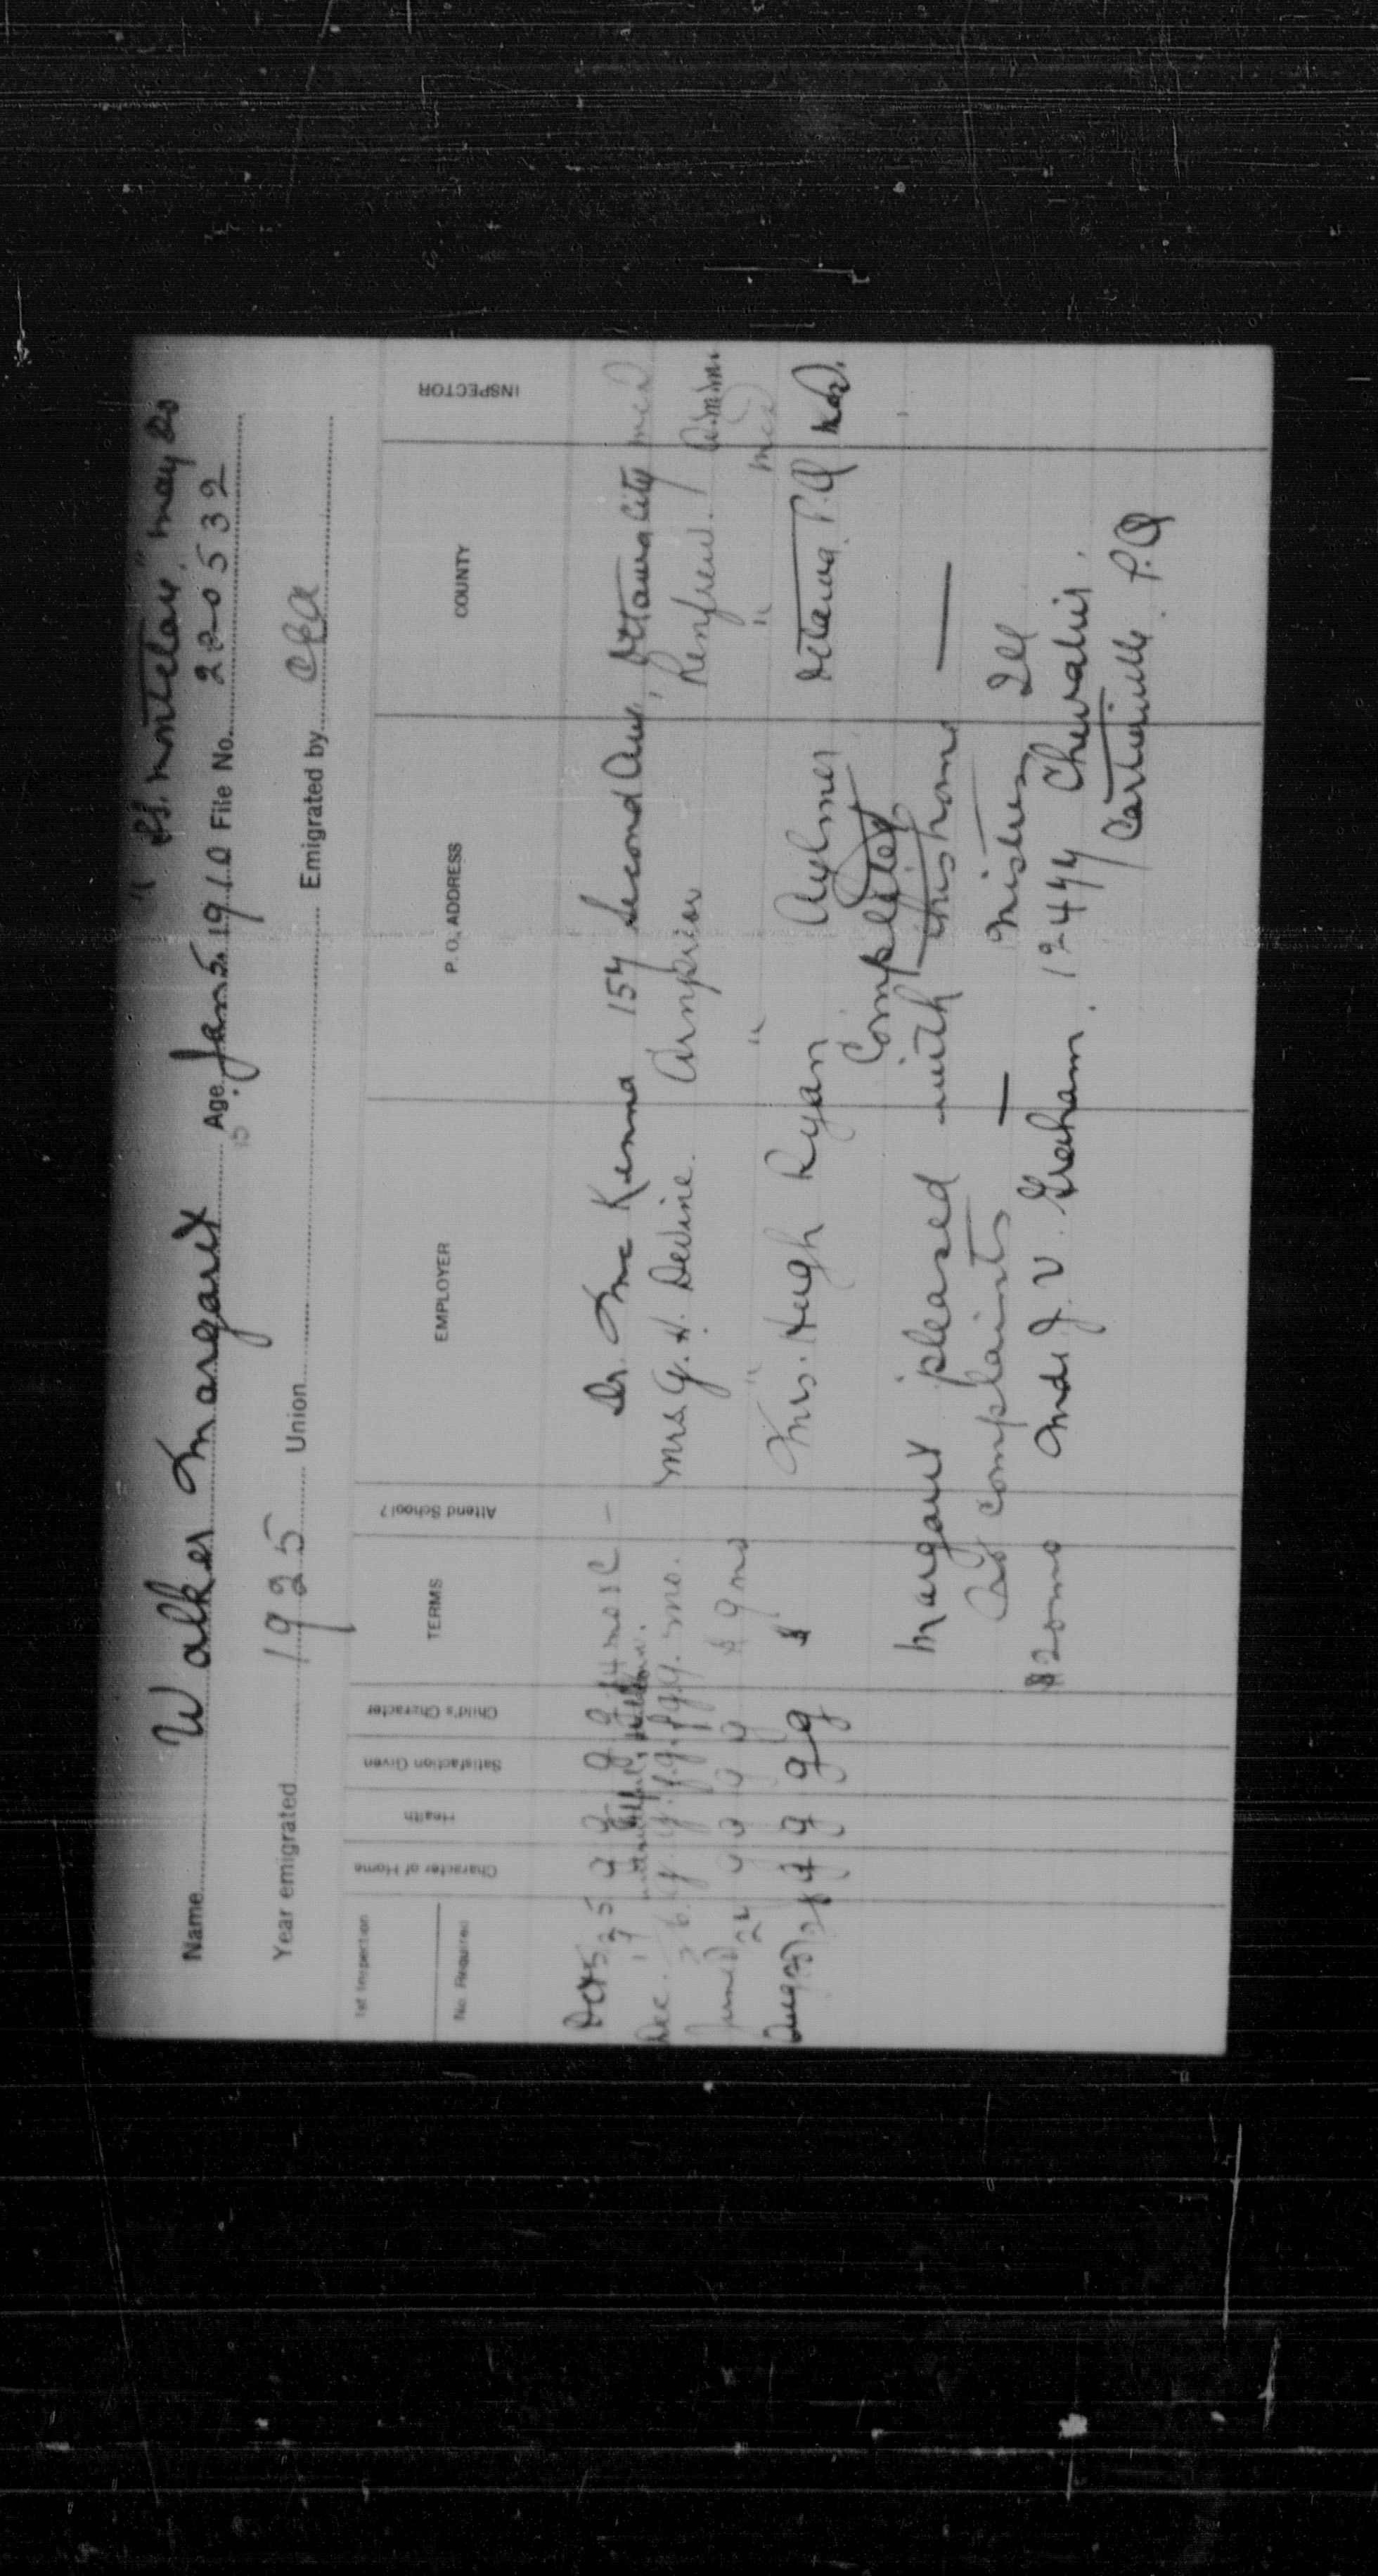 "Montclare" May 20
Name Walker Margaret Age 15 Jan 5. 1910 File No. 220532
Year emigrated 1925 Union Emigrated by CEA
1st Inspection
No. Required
Character of Home Health Satisfaction Given Child's Character TERMS Attend School? EMPLOYER P. O. ADDRESS COUNTY INSPECTOR
Oct 5, 25 g g g g 14 mo & C — Dr. McKenna 154 Second Ave, Ottawa City
Dec. 17 26. g. g. f.g. f.g. 9. mo. Mrs G. H. Devine. Arnprior Renfrew. A.M.M.
June 27 g g g g $ 9 mo " " "
Aug g g g g $ Mrs. Hugh Ryan Aylmer Ottawa P.Q
Completed
Margaret pleased with this home —
No complaints — Mistress Ill
$20 mo J. V. Graham. 12444 Chevalier.
Cartierville. P.Q